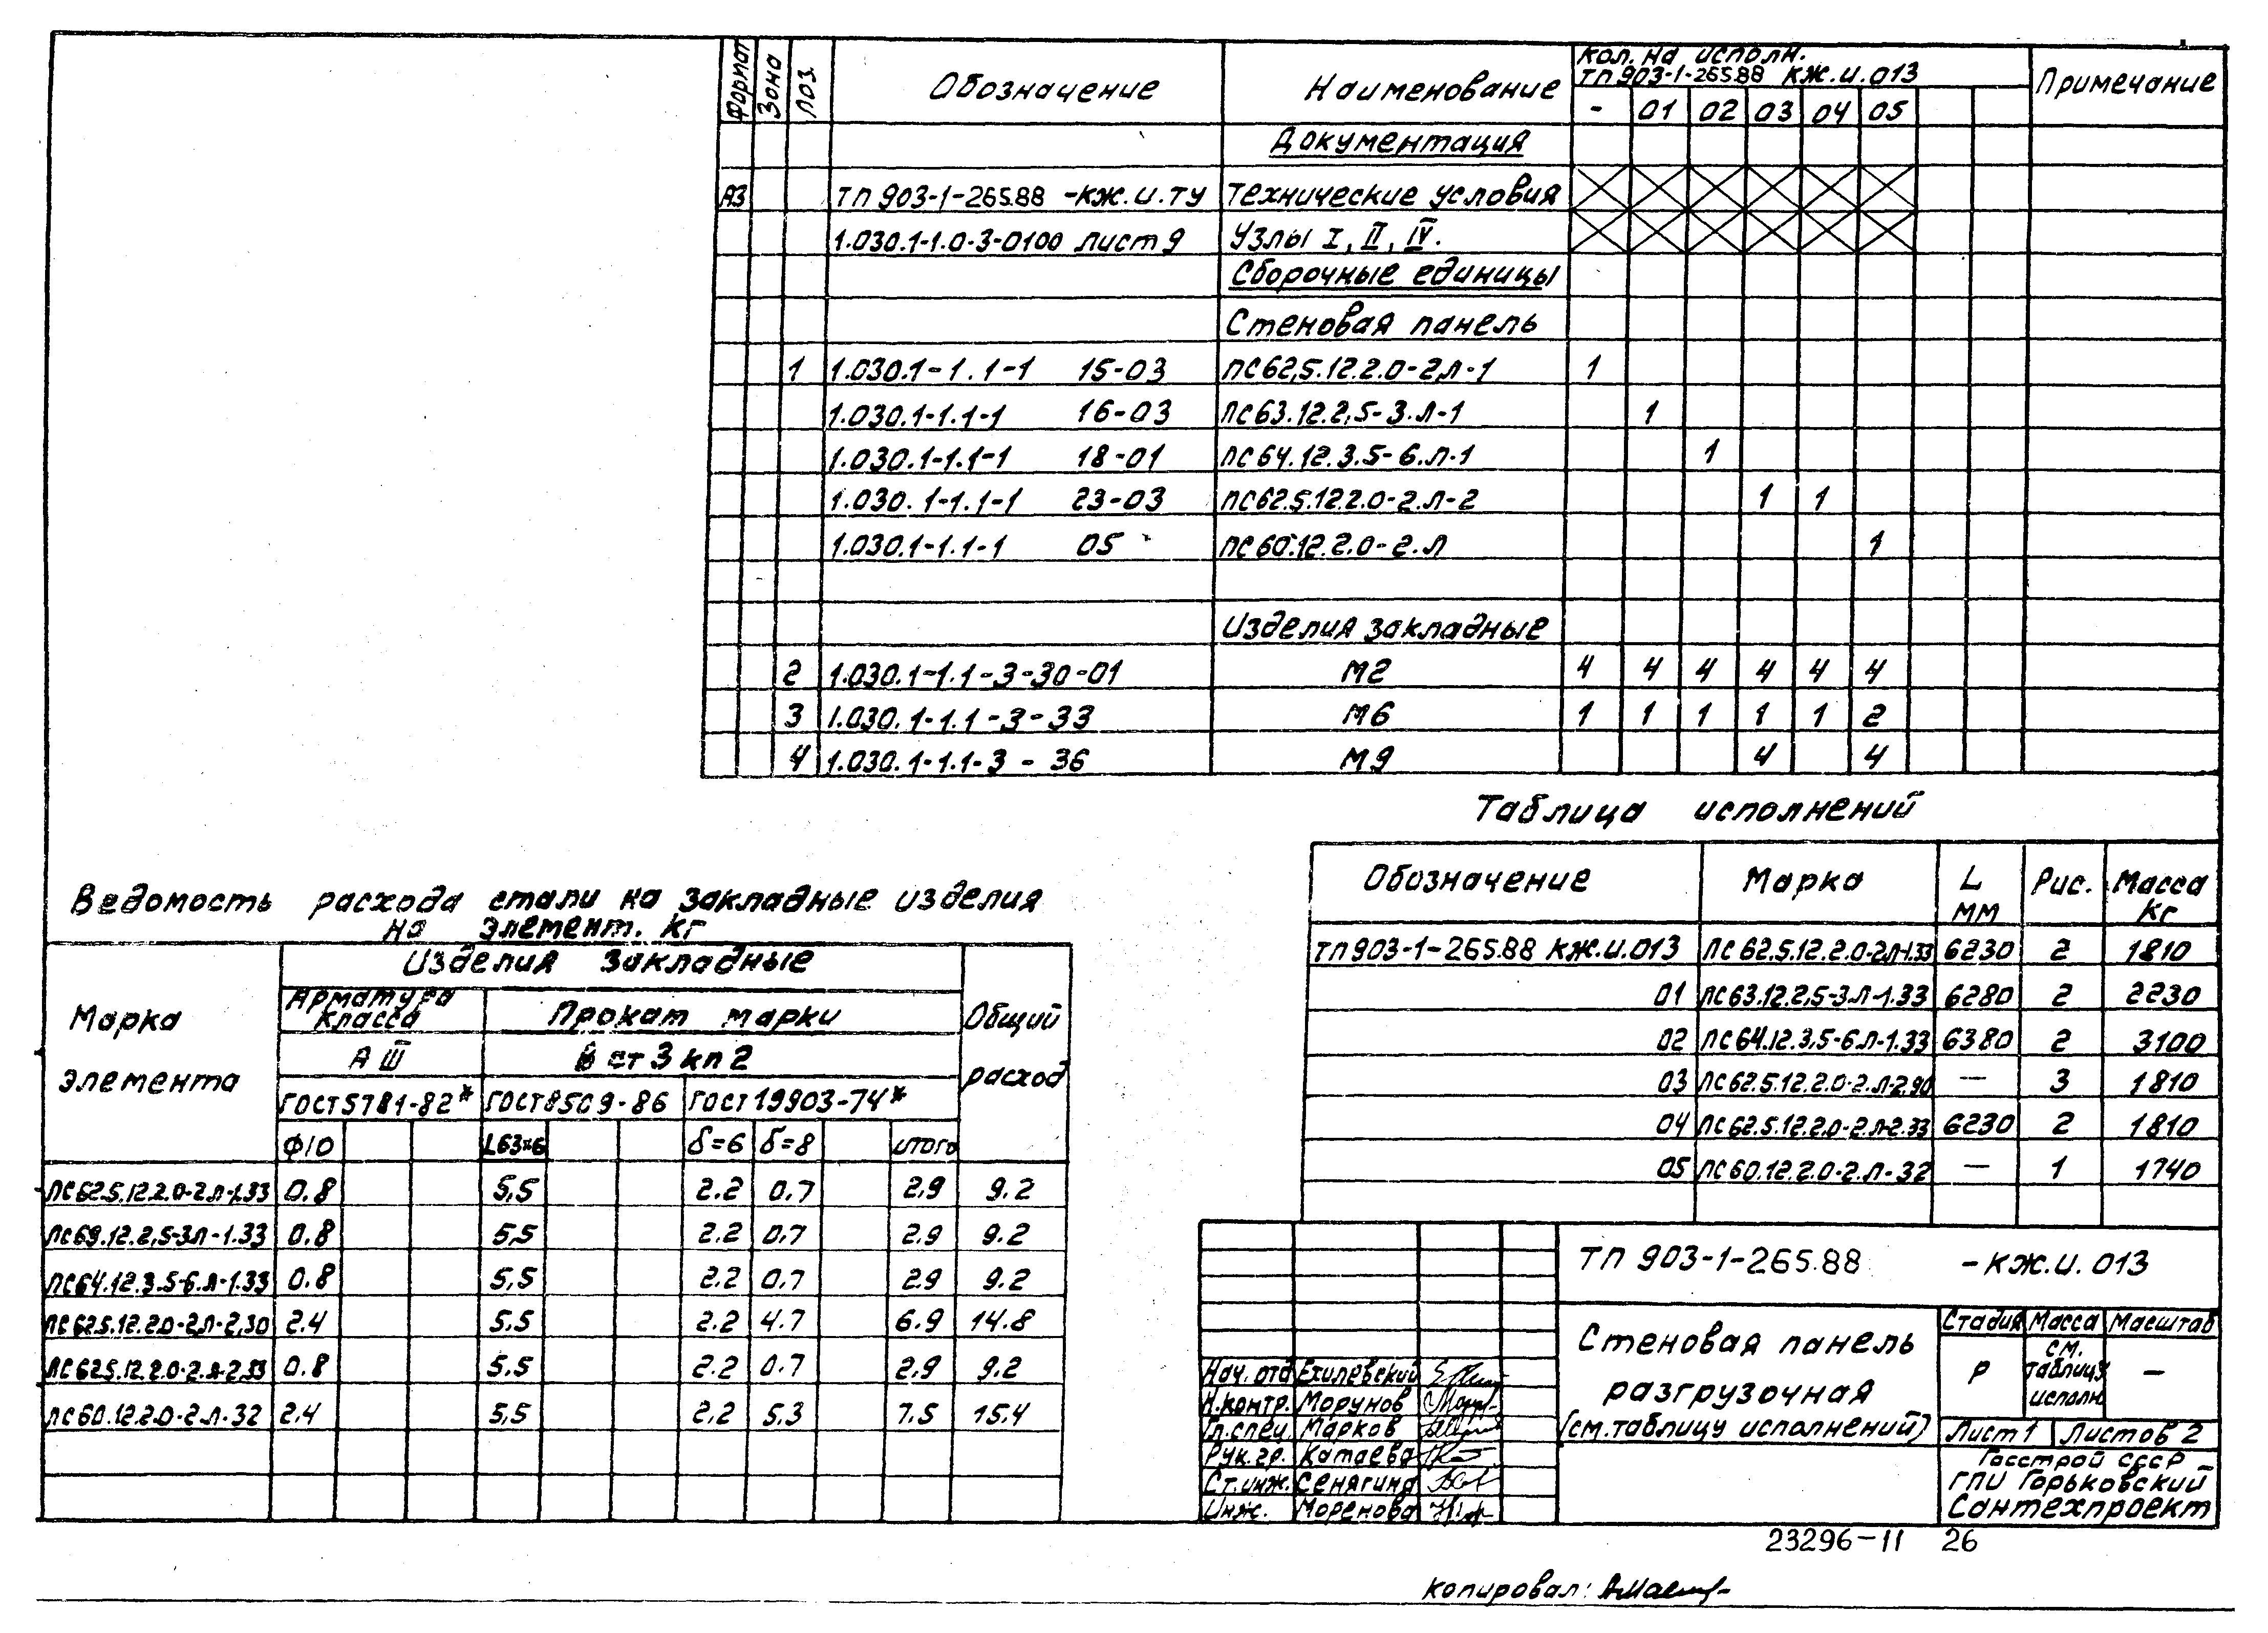 Формат Зона Поз. Обозначение Наименование Кол. на исполн. ТП 903-1-265.88 КЖ.И.013 Примечание
- 01 02 03 04 05
Документация
А3 ТП 903-1-265.88 -КЖ.И.ТУ Технические условия
1.030.1-1.0-3-0100 лист 9 Узлы I, II, IV.
Сборочные единицы
Стеновая панель
1 1.030.1-1.1-1 15-03 ПС62,5.12.2.0-2Л-1 1
1.030.1-1.1-1 16-03 ПС63.12.2,5-3.Л-1 1
1.030.1-1.1-1 18-01 ПС64.12.3.5-6.Л-1 1
1.030.1-1.1-1 23-03 ПС62.5.12.2.0-2.Л-2 1 1
1.030.1-1.1-1 05 ПС60.12.2.0-2.Л 1
Изделия закладные
2 1.030.1-1.1-3-30-01 М2 4 4 4 4 4 4
3 1.030.1-1.1-3-33 М6 1 1 1 1 1 2
4 1.030.1-1.1-3-36 М9 4 4
Таблица исполнений
Обозначение Марка L мм Рис. Масса кг
ТП 903-1-265.88 КЖ.И.013 ПС 62.5.12.2.0-2Л-1.33 6230 2 1810
01 ПС63.12.2,5-3.Л-1.33 6280 2 2230
02 ПС64.12.3,5-6.Л-1.33 6380 2 3100
03 ПС62.5.12.2.0-2.Л-2.90 — 3 1810
04 ПС62.5.12.2.0-2.Л-2.33 6230 2 1810
05 ПС60.12.2.0-2.Л-32 — 1 1740
Ведомость расхода стали на закладные изделия
на элемент. кг
Марка элемента Изделия закладные Общий расход
Арматура класса Прокат марки
А III В ст 3 кп 2
ГОСТ 5781-82* ГОСТ 8509-86 ГОСТ 19903-74*
Ф10 L63×6 δ=6 δ=8 итого
ПС62.5.12.2.0-2Л-1.33 0.8 5,5 2.2 0.7 2,9 9.2
ПС69.12.2,5-3Л-1.33 0.8 5,5 2.2 0.7 2.9 9.2
ПС64.12.3.5-6.Л-1.33 0.8 5,5 2.2 0.7 2.9 9.2
ПС62.5.12.2.0-2.Л-2,30 2.4 5.5 2.2 4.7 6.9 14.8
ПС62.5.12.2.0-2.Л-2,33 0.8 5.5 2.2 0.7 2.9 9.2
ПС60.12.2.0-2.Л-32 2.4 5,5 2.2 5.3 7.5 15.4
ТП 903-1-265.88 -КЖ.И. 013
Стеновая панель
разгрузочная
(см. таблицу исполнений)
Стадия Масса Масштаб
Р см. таблицу исполн —
Лист 1 Листов 2
Госстрой СССР
ГПИ Горьковский
Сантехпроект
Нач. отд Ехилевский
Н.контр. Морунов
Гл.спец. Марков
Рук.гр. Катаева
Ст.инж. Сенягина
Инж. Моренова
23296-11 26
Копировал: